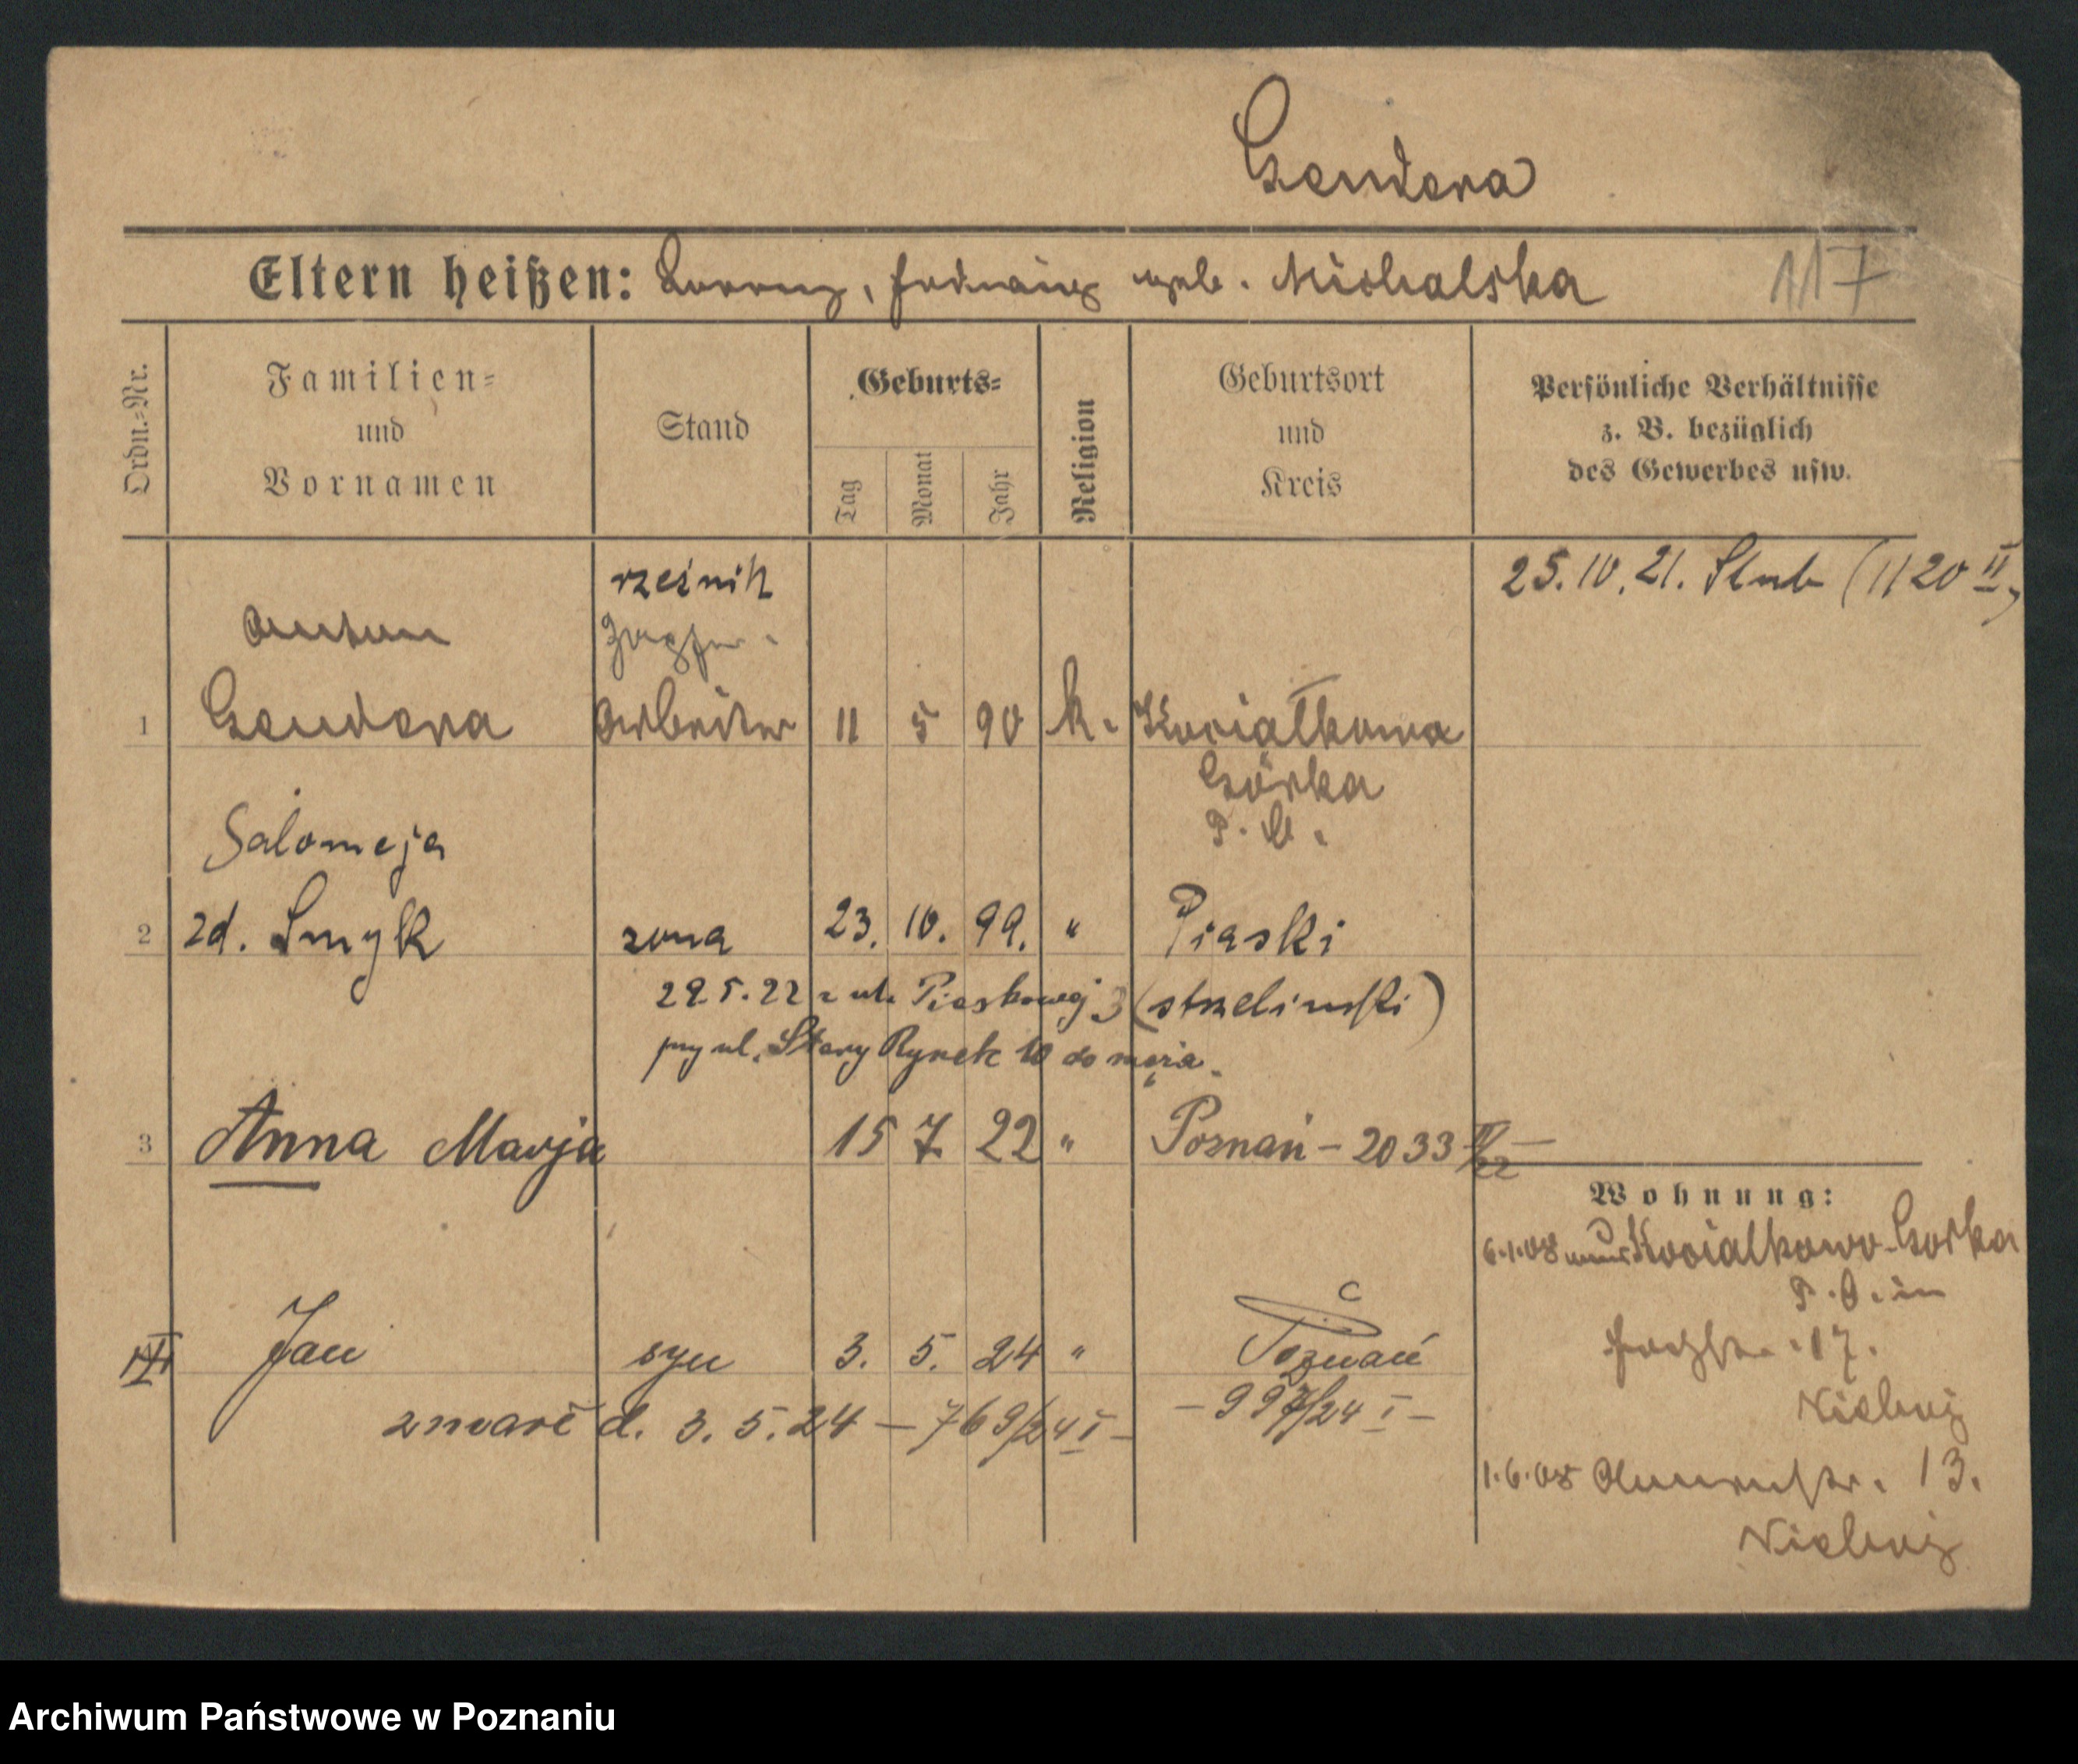 Gendera
Eltern heißen: Lorenz, Hedwig geb. Michalska
117
Ordn.-Nr.
Familien-
und
Vornamen
Stand
Geburts-
Tag
Monat
Jahr
Religion
Geburtsort
und
Kreis
Persönliche Verhältnisse
z. B. bezüglich
des Gewerbes usw.
rzeźnik
25.10.21. Ślub (1120 II)
Anton
1 Gendera Arbeiter 11 5 90 k. Kociałkowa
Górka
P. O.
Salomeja
2 zd. Smyk żona 23. 10. 99. " Piaski
29.5.22 z ul. Piaskowej 3 (strzeliński)
przy ul. Stary Rynek 10 do męża.
3 Anna Marja 15 7. 22 " Poznań - 2033 II/22 -
Wohnung:
6.1.08 Kocialkowo-Gorka
P. O. in
17.
Jan syn 3. 5. 24 " Poznań
zmarł d. 3. 5. 24 - 769/24 I -
- 997/24 I -
1.6.08 13.